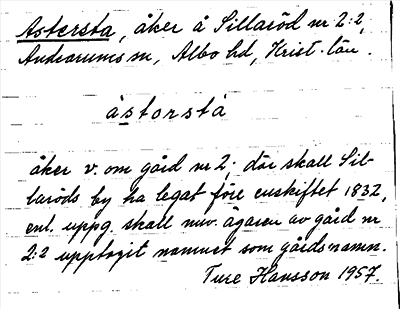 Astersta, åker å Sillaröd nr 2:2,
Andrarums sn, Albo hd, Krist. län.
àstorstá
åker v. om gård nr 2; där skall Sil-
laröds by ha legat före enskiftet 1832,
enl. uppg. skall nuv. ägaren av gård nr
2:2 upptagit namnet som gårdsnamn.
Ture Hansson 1957.